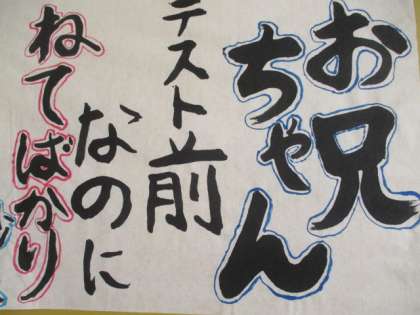 お兄
ちゃん
テスト前
なのに
ねてばかり